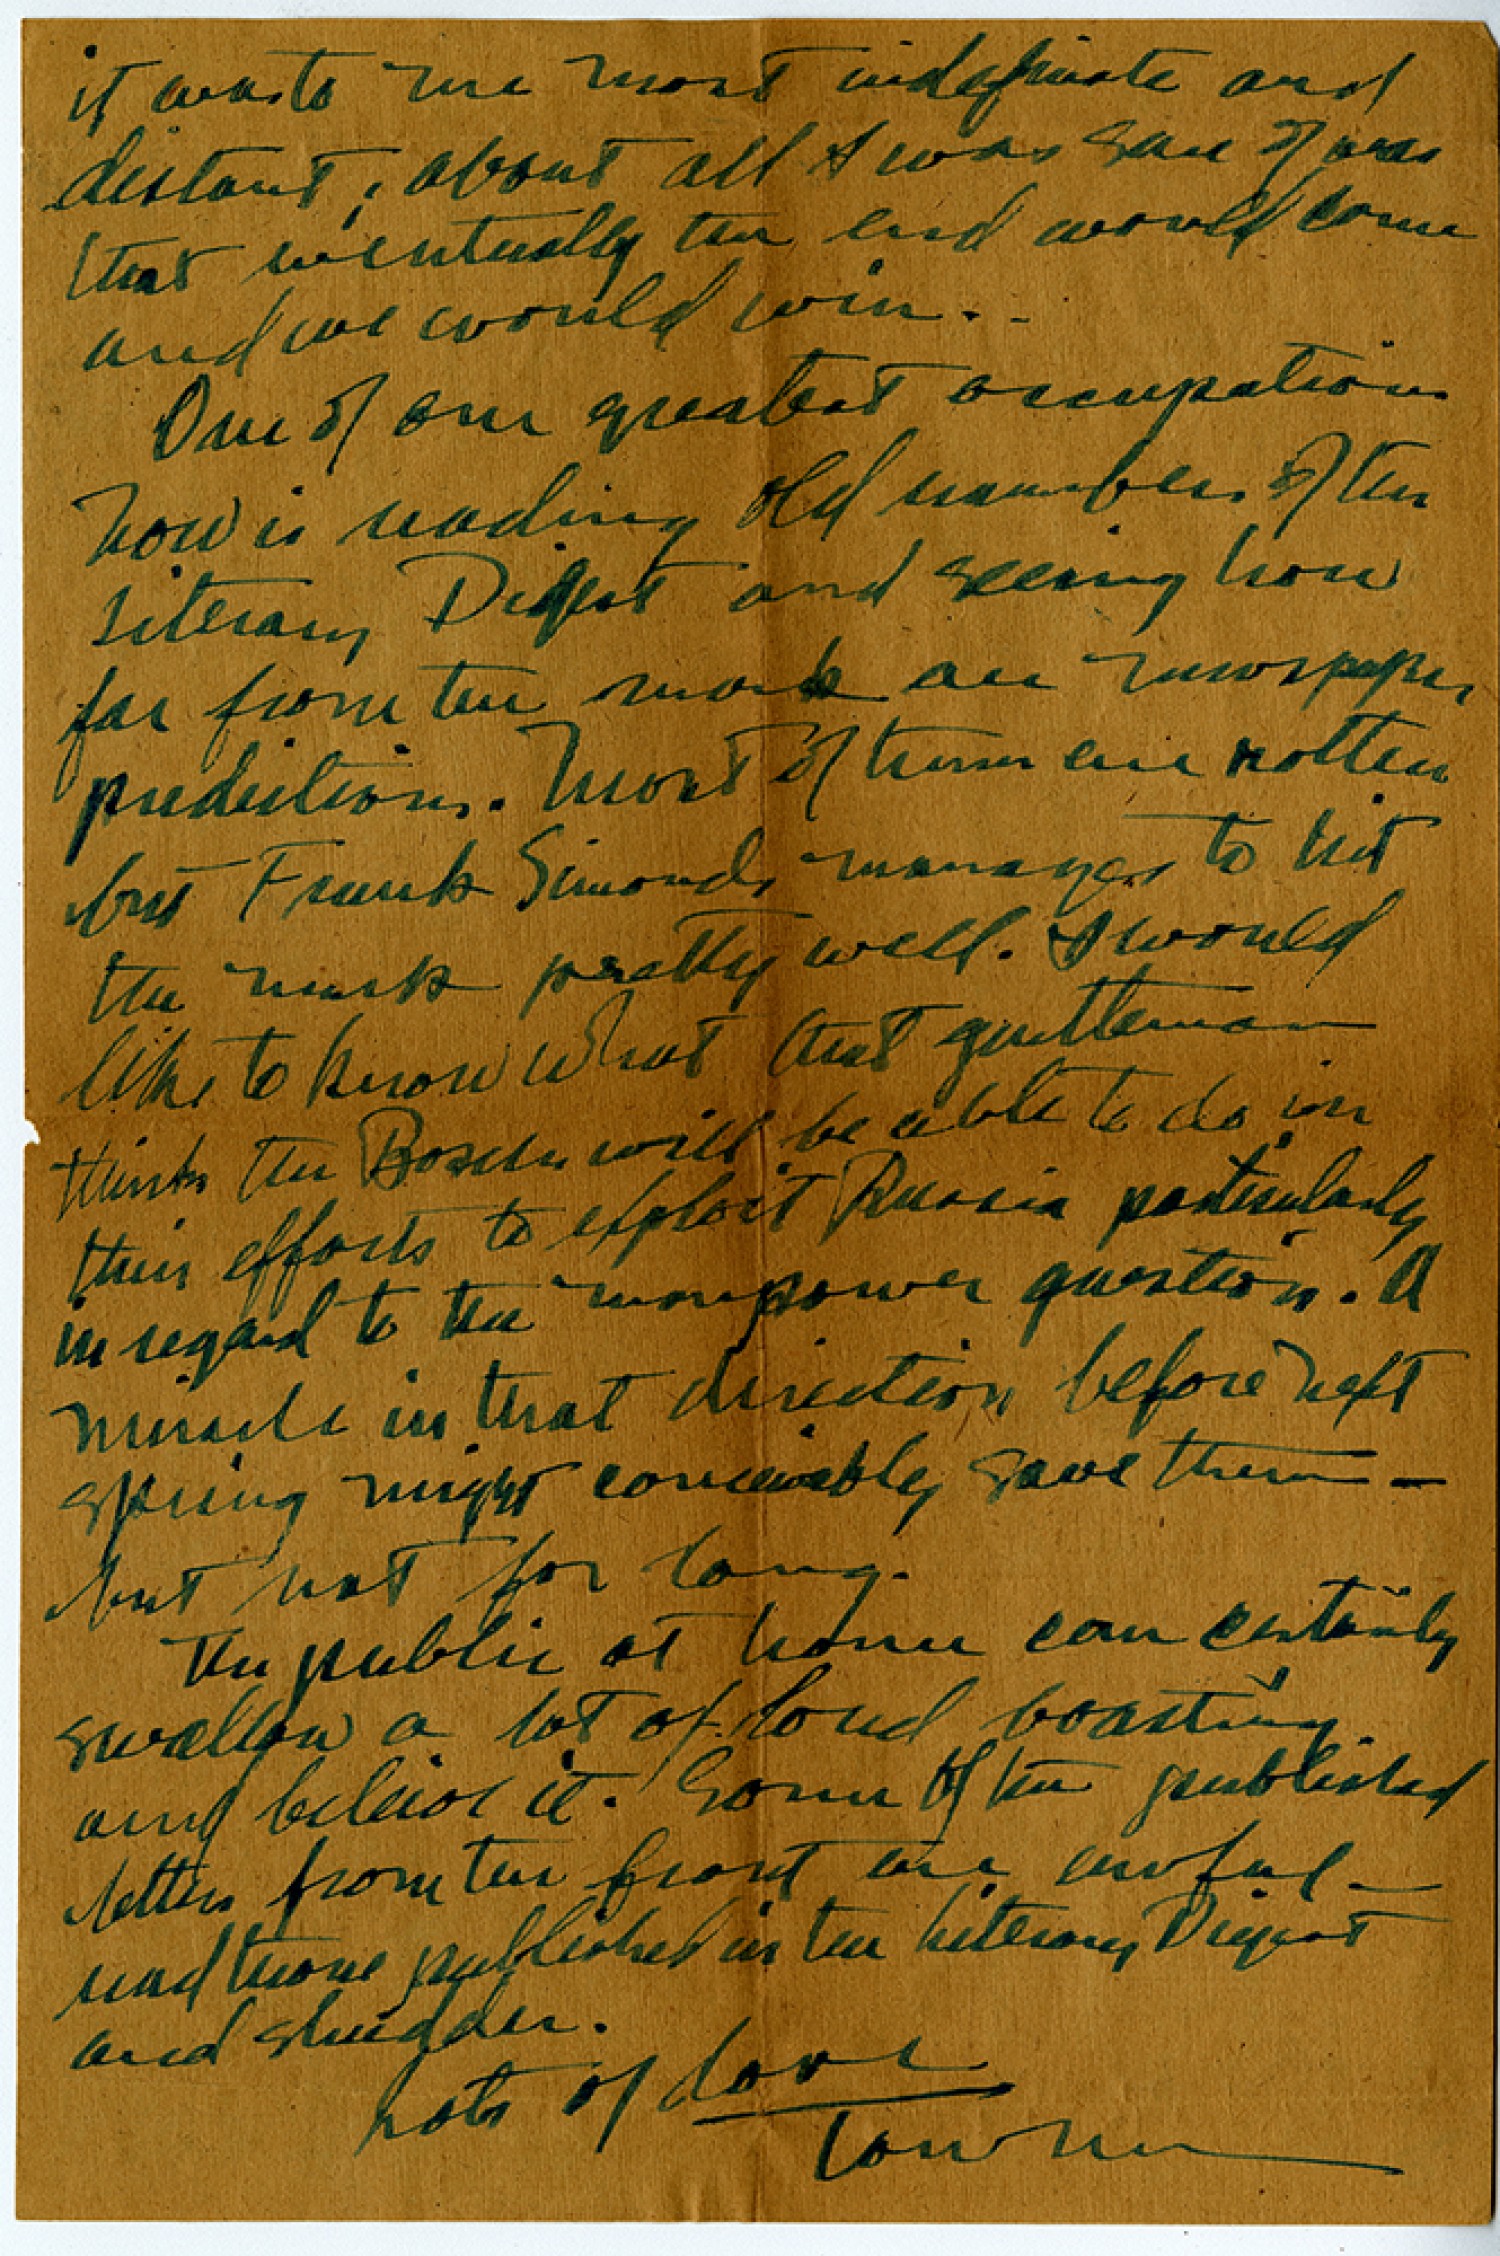 it was to me most indefinite and
distant; about all I was sure of was
that eventually the end would come
and we would win..
One of our greatest occupations
now is reading old numbers of the
Literary Digest and seeing how
far from the mark are newspaper
predictions. Most of them are rotten
but Frank Simonds manages to hit
the mark pretty well. I would
like to know what that gentleman
thinks the Bosche will be able to do in
their efforts to exploit Russia particularly
in regard to the manpower question. A
miracle in that direction before next
spring might conceivably save them -
but not for long.
The public at home can certainly
swallow a lot of loud boasting
and believe it. Some of the published
letters from the front are awful -
read those published in the Literary Digest
and shudder.
Lots of love